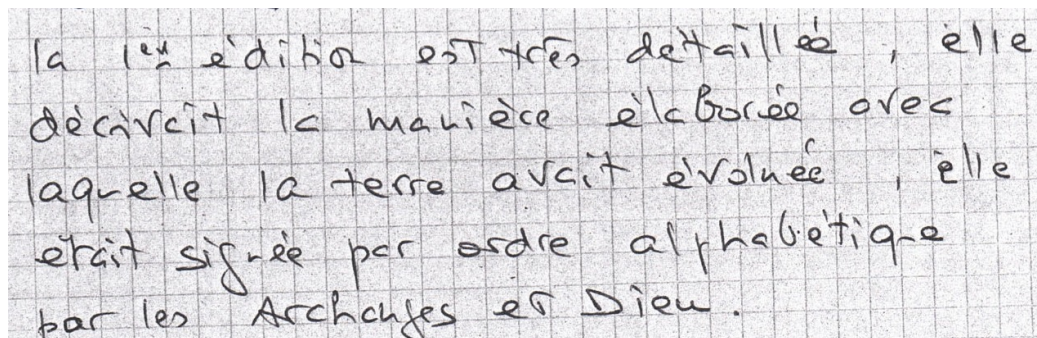 la 1ère édition est très détaillée, elle
décrivait la manière élaborée avec
laquelle la terre avait évoluée, elle
était signée par ordre alphabétique
par les Archanges et Dieu.